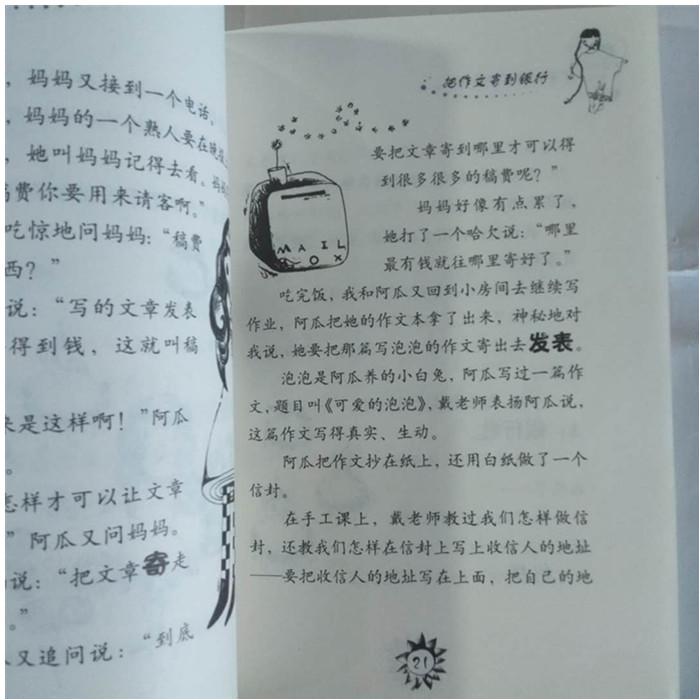 ，妈妈又接到一个电话。
，妈妈的一个熟人要在晚
，她叫妈妈记得去看。妈
稿费你要用来请客啊。”
吃惊地问妈妈：“稿费
西？”
说：“写的文章发表
得到钱，这就叫稿
来是这样啊！”阿瓜
。
怎样才可以让文章
”阿瓜又问妈妈。
说：“把文章寄走
。”
又追问说：“到底
把作文寄到银行
要把文章寄到哪里才可以得
到很多很多的稿费呢？”
妈妈好像有点累了，
她打了一个哈欠说：“哪里
最有钱就往哪里寄好了。”
MAIL
BOX
吃完饭，我和阿瓜又回到小房间去继续写
作业，阿瓜把她的作文本拿了出来，神秘地对
我说，她要把那篇写泡泡的作文寄出去发表。
泡泡是阿瓜养的小白兔，阿瓜写过一篇作
文，题目叫《可爱的泡泡》，戴老师表扬阿瓜说，
这篇作文写得真实、生动。
阿瓜把作文抄在纸上，还用白纸做了一个
信封。
在手工课上，戴老师教过我们怎样做信
封，还教我们怎样在信封上写上收信人的地址
——要把收信人的地址写在上面，把自己的地
21